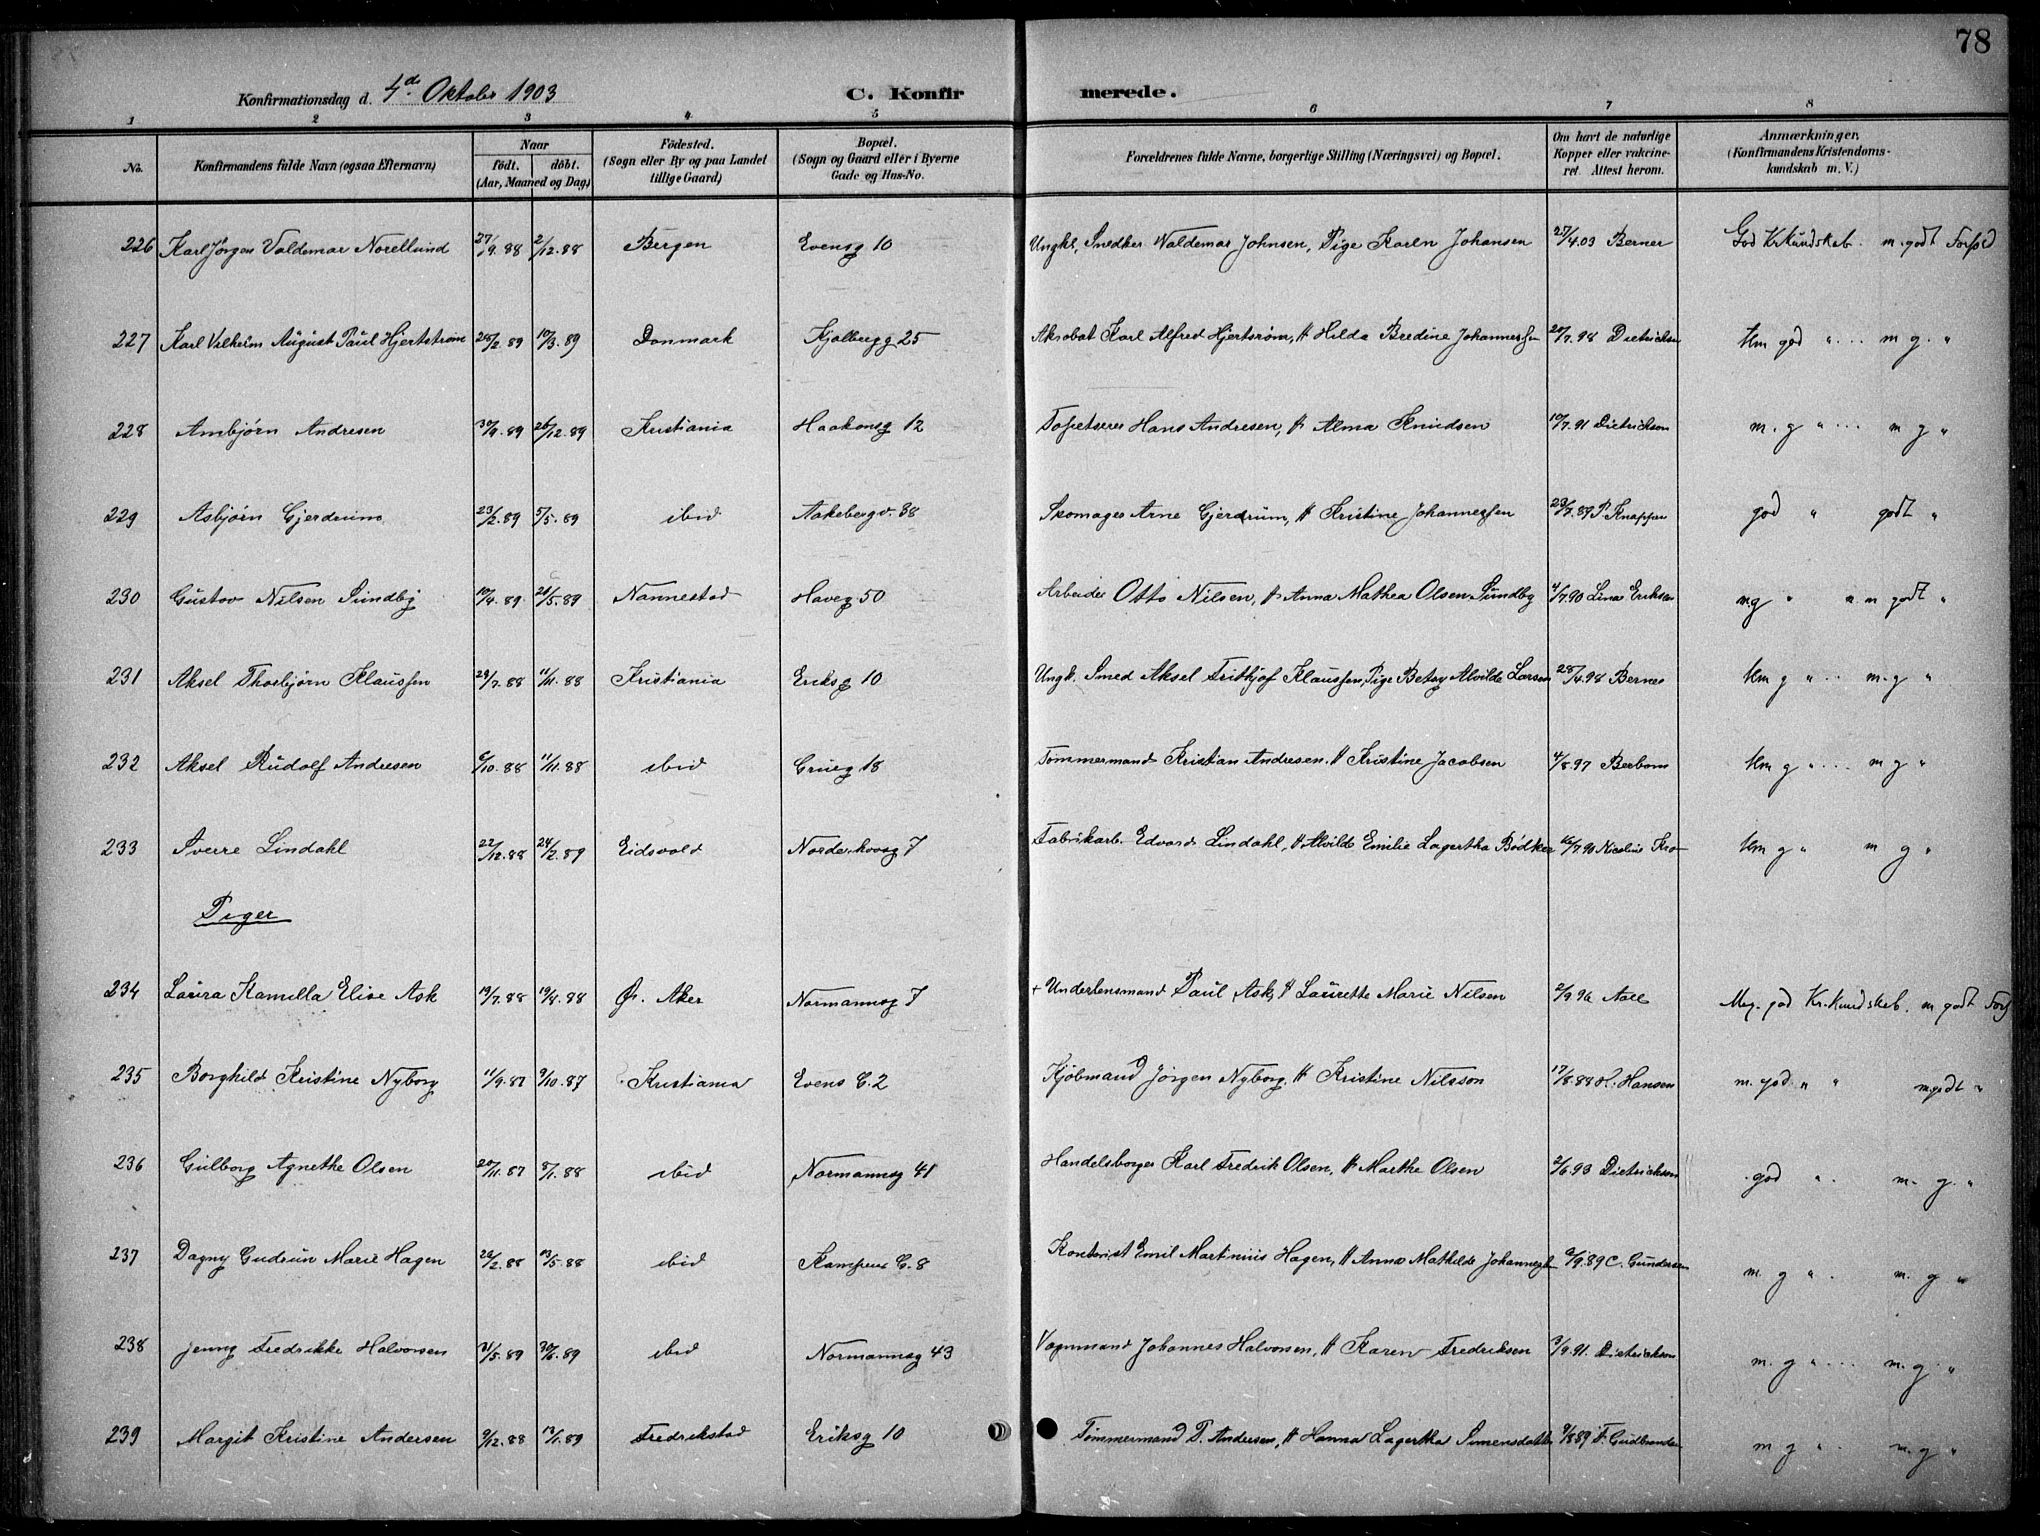 78
Konfirmationsdag d. 4de Oktober 1903 C. Konfirmerede.
1 2 3 4 5 6 7 8
No. Konfirmandens fulde Navn (ogsaa Efternavn) Naar født. døbt. (Aar, Maaned og Dag) Fødested. (Sogn eller By og paa Landet tillige Gaard) Bopæl. (Sogn og Gaard eller i Byerne Gade og Hus-No. Forældrenes fulde Navne, borgerlige Stilling (Næringsvei) og Bopæl. Om havt de naturlige Kopper eller vakcineret. Attest herom. Anmærkninger. (Konfirmandens Kristendomskundskab m. V.)
226 Karl Jörgen Valdemar Norellund 27/9.88 2/12.88 Bergen Evensg 10 Ungk. Snedker Waldemar Johnsen, Pige Karen Johansen 27/4.03 Berner God Kr.Kundskab. m. godt Forhd
227 Karl Vilhelm August Paul Hjertstrøm 28/2.89 10/3.89 Danmark Kjølbergg 25 Akrobat Karl Alfred Hjertsrøm, H Hilda Bredine Johannessen 20/7.98 Dietrichson Um god " m g. "
228 Arnbjörn Andresen 30/9.89 26/12.89 Kristiania Haakonsg 12 Tapetserer Hans Andresen, H Alma Knudsen 10/7.91 Dietrichson m. g " m g "
229 Asbjörn Gjerdrum 23/2.89 5/5.89 ibid Aakebergv. 38 Skomager Arne Gjerdrum, H Kristine Johannessen 29/7.89 P Knappen god " godt "
230 Gustav Nilsen Sundby 10/4.89 26/5.89 Nannestad Haveg 50 Arbeider Otto Nilsen, H Anna Mathea Olsen Sundby 4/7.90 Lina Eriksen m.g " m godt "
231 Aksel Thorbjörn Klaussen 28/7.88 11/11.88 Kristiania Eriksg 10 Ungk. Smed Aksel Frithjof Klaussen, Pige Betsy Alvilde Larsen 28/4.98 Berner Um g " m. g "
232 Aksel Rudolf Andresen 6/10.88 11/11.88 ibid Grueg 18 Tömmermand Kristian Andresen. H Kristine Jacobsen 4/8.97 Berbom Um g " m g "
233 Sverre Lindahl 22/12.88 24/2.89 Eidsvold Norderhovsg 7 Fabrikarb. Edvard Lindahl, H Alvilde Emilie Lagertha Bödker 16/7.90 Nicoline Kro- Um g " m g "
Piger
234 Laura Kamilla Elise Ask 13/7.88 19/4.88 Ø. Aker Normannsg 7 + Underlensmand Paul Ask, H Laurette Marie Nilsen 2/9.96 Aall Meg. god Kr.Kundskab. m godt Forh
235 Borghild Kristine Nyborg 11/9.87 9/10.87 Kristiania Evens G.2 Kjöbmand Jörgen Nyborg, H Kristine Nilsson 17/8.88 H. Hansen m. god " " m.godt "
236 Gulborg Agnethe Olsen 20/11.87 8/1.88 ibid Normannsg 41 Handelsborger Karl Fredrik Olsen, H Marthe Olsen 2/6.93 Dietrichson god " m. g. "
237 Dagny Gudrun Marie Hagen 22/2.88 13/5.88 ibid Kampens G.8 Kontorist Emil Martinius Hagen, H Anna Mathilde Johannessen 2/9.89 C. Gundersen m. g " m. g "
238 Jenny Fredrikke Halvorsen 31/5.89 30/6.89 ibid Normannsg 43 Vognmand Johannes Halvorsen, H Karen Fredriksen 3/9.91. Dietrichson m. g " m. g "
239 Margit Kristine Andersen 9/12.88 13/1.89 Fredrikstad Eriksg 10 Tömmermand P. Andersen, H Hanna Lagertha Simensdatter 9/8.89 F. Gudbrandsen m g " m. g "